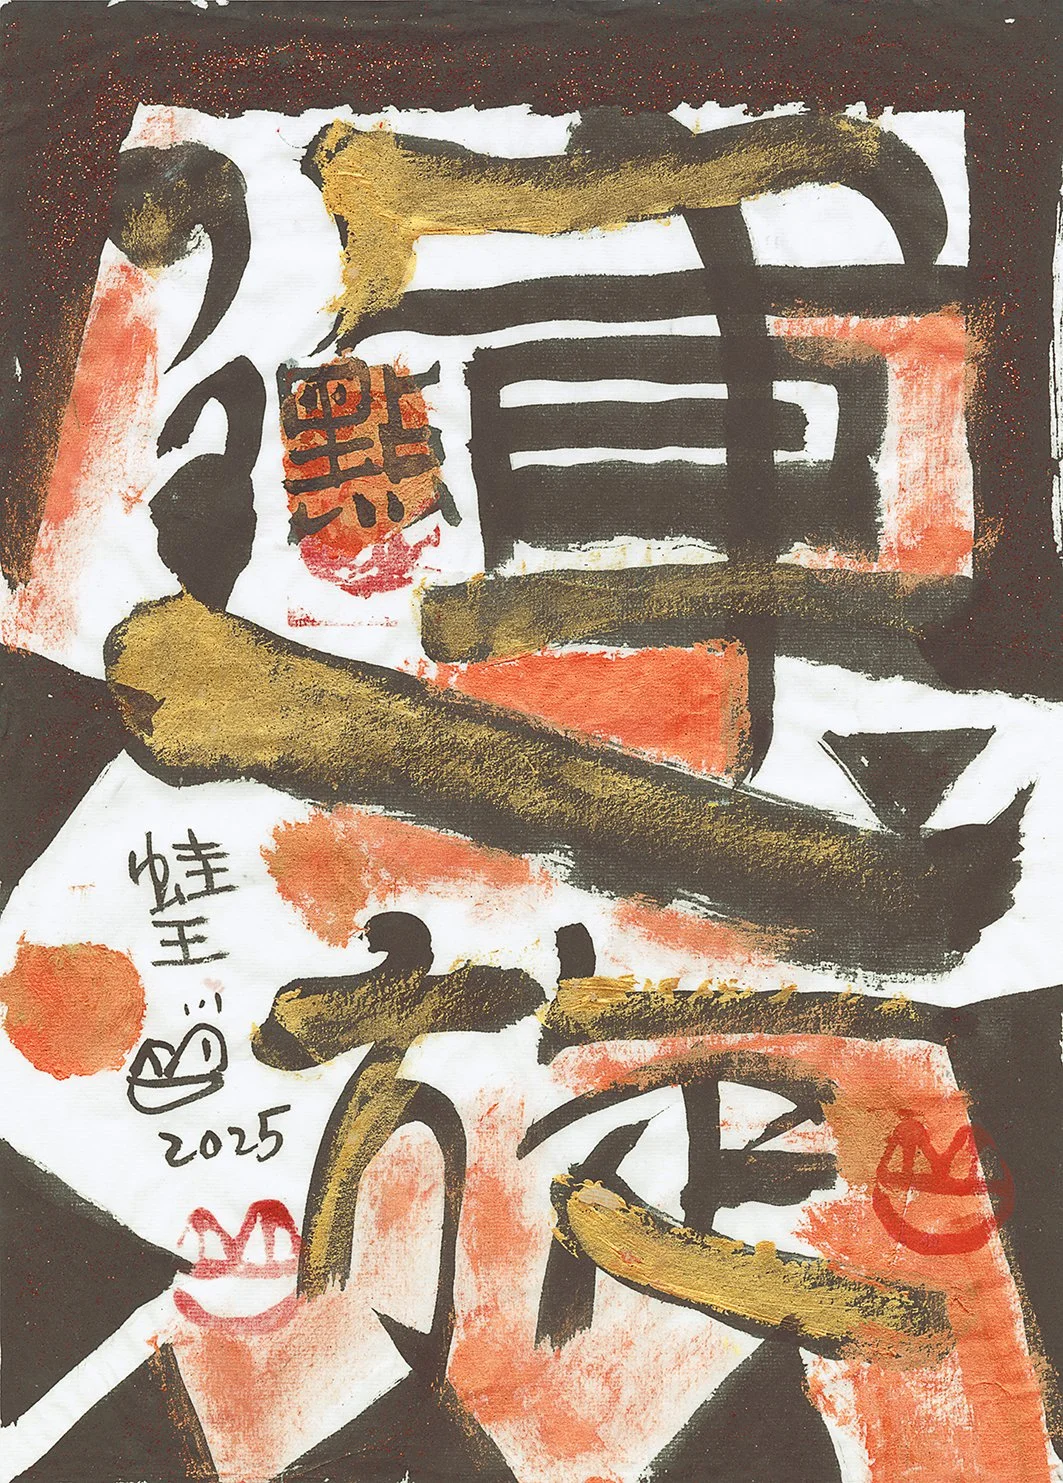 運
點
旋
蛙王
2025